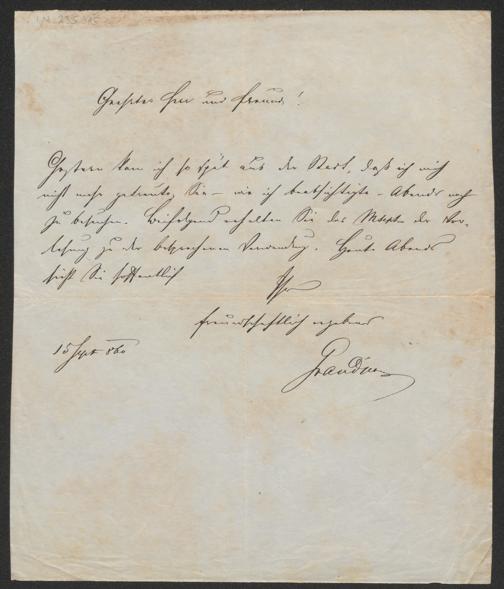 Geehrter Herr und Freund!
Gestern kam ich so spät aus der Stadt, daß ich mich
nicht mehr getraute, Sie – wie ich beabsichtigte – Abends noch
zu besuchen. Beifolgend erhalten Sie das Mscpt der Vor-
lesung zu der besprochenen Verwendung. Heute Abends
sieht Sie hoffentlich
Ihr
freundschaftlich ergebener
15 Sept 860